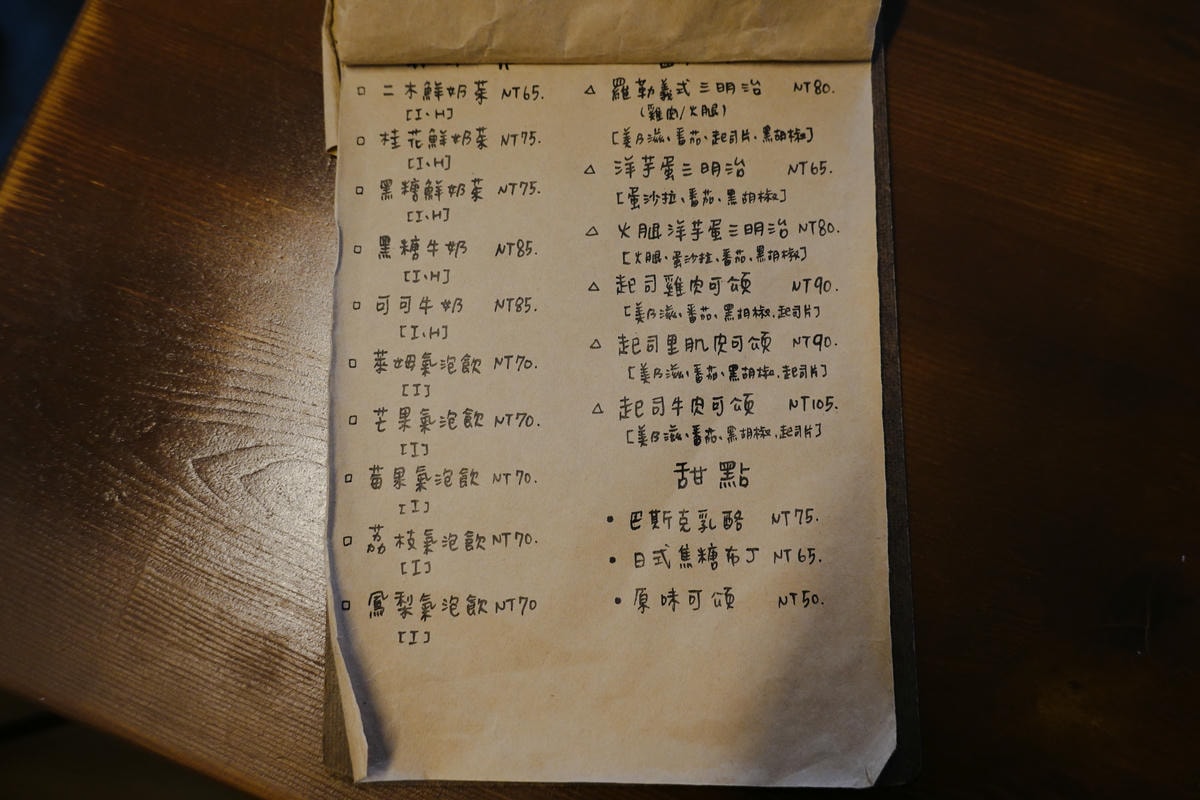 二木鮮奶茶 NT65.
[I、H]
桂花鮮奶茶 NT75.
[I、H]
黑糖鮮奶茶 NT75.
[I、H]
黑糖牛奶 NT85.
[I、H]
可可牛奶 NT85.
[I、H]
萊姆氣泡飲 NT70.
[I]
芒果氣泡飲 NT70.
[I]
莓果氣泡飲 NT70.
[I]
荔枝氣泡飲 NT70.
[I]
鳳梨氣泡飲 NT70
[I]
羅勒義式三明治 NT80.
(雞肉/火腿)
[美乃滋、番茄、起司片、黑胡椒]
洋芋蛋三明治 NT65.
[蛋沙拉、番茄、黑胡椒]
火腿洋芋蛋三明治 NT80.
[火腿、蛋沙拉、番茄、黑胡椒]
起司雞肉可頌 NT90.
[美乃滋、番茄、黑胡椒、起司片]
起司里肌肉可頌 NT90.
[美乃滋、番茄、黑胡椒、起司片]
起司牛肉可頌 NT105.
[美乃滋、番茄、黑胡椒、起司片]
甜點
巴斯克乳酪 NT75.
日式焦糖布丁 NT65.
原味可頌 NT50.